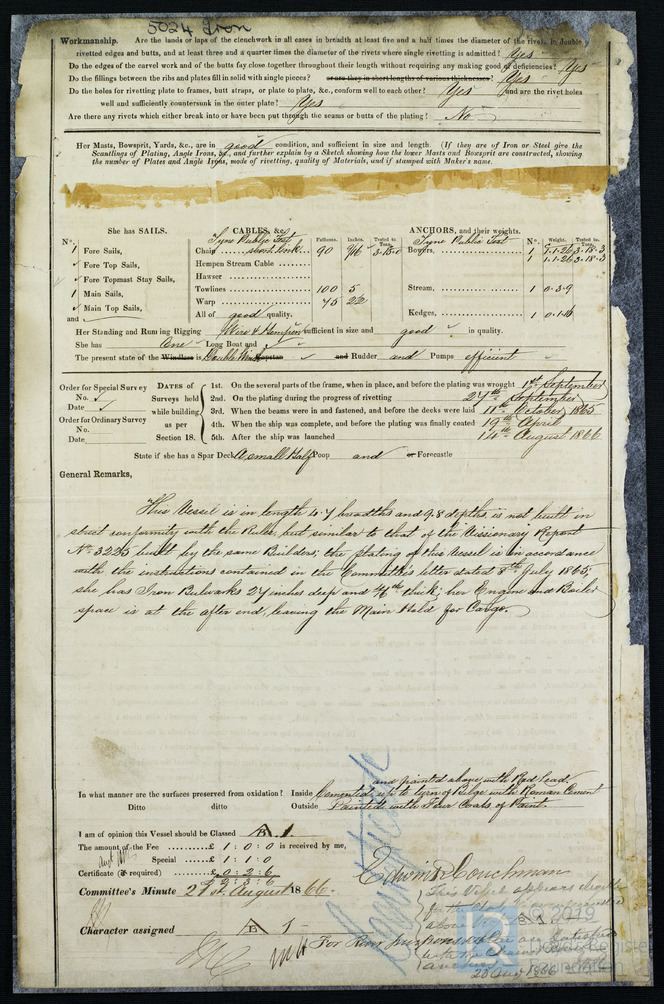 5024 Iron
Workmanship. Are the lands or laps of the clenchwork in all cases in breadth at least five and a half times the diameter of the rivets in double
rivetted edges and butts, and at least three and a quarter times the diameter of the rivets where single rivetting is admitted? Yes
Do the edges of the carvel work and of the butts fay close together throughout their length without requiring any making good of deficiencies? Yes
Do the fillings between the ribs and plates fill in solid with single pieces? or are they in short lengths of various thicknesses? Yes
Do the holes for rivetting plate to frames, butt straps, or plate to plate, &c., conform well to each other? Yes and are the rivet holes
well and sufficiently countersunk in the outer plate? Yes
Are there any rivets which either break into or have been put through the seams or butts of the plating? No
Her Masts, Bowsprit, Yards, &c., are in good condition, and sufficient in size and length. (If they are of Iron or Steel give the
Scantlings of Plating, Angle Irons, &c., and further explain by a Sketch showing how the lower Masts and Bowsprit are constructed, showing
the number of Plates and Angle Irons, mode of rivetting, quality of Materials, and if stamped with Maker's name.
She has SAILS. CABLES, &c. Fathoms. Inches. Tested to Tons. ANCHORS, and their weights. Nº. Weight. Tested to Tons.
Nº. Tyne Public Test Tyne Public Test
1 Fore Sails, Chain short link 90 Bowers, 1 3.18.3
Fore Top Sails, Hempen Stream Cable 1 1.1.26 3.18.3
Fore Topmast Stay Sails, Hawser
1 Main Sails, Towlines 100 5 Stream, 1 0.3.9
Main Top Sails, Warp 75
and All of good quality. Kedges, 1
Her Standing and Running Rigging Wire & Hempen sufficient in size and good in quality.
She has One Long Boat and
The present state of the Windlass is Capstan and Rudder and Pumps efficient
Order for Special Survey No. Date
Order for Ordinary Survey No. Date
DATES of Surveys held while building as per Section 18.
1st. On the several parts of the frame, when in place, and before the plating was wrought 1st September
2nd. On the plating during the progress of rivetting 27th September
3rd. When the beams were in and fastened, and before the decks were laid 11th October 1865
4th. When the ship was complete, and before the plating was finally coated 19th April
5th. After the ship was launched 14th August 1866
State if she has a Spar Deck A small Half Poop and or Forecastle
General Remarks,
This Vessel is in length 4.7 breadths and 9.8 depths, is not built in
strict conformity with the Rules, but similar to that of the Missionary Report
Nº 3225 built by the same Builders; the plating of this Vessel is in accordance
with the instructions contained in the Committee's letter dated 8th July 1865;
she has Iron Bulwarks 27 inches deep and thick; her Engine and Boiler
space is at the after end, leaving the Main Hold for Cargo.
and painted above with Red Lead.
In what manner are the surfaces preserved from oxidation? Inside Cemented up to turn of Bilge with Roman Cement
Ditto ditto Outside Painted with Four Coats of Paint.
I am of opinion this Vessel should be Classed B 1.
The amount of the Fee £ 1 : 0 : 0 is received by me,
Special £ 1 : 1 : 0
Certificate (if required) £ 0 : 2 : 6
£ 2 : 3 : 6
Edwin Couchman
Committee's Minute 21st August 1866.
This Vessel appears
Character assigned B 1
For
20 Aug 1866
© 2019
Lloyd's Register
Foundation